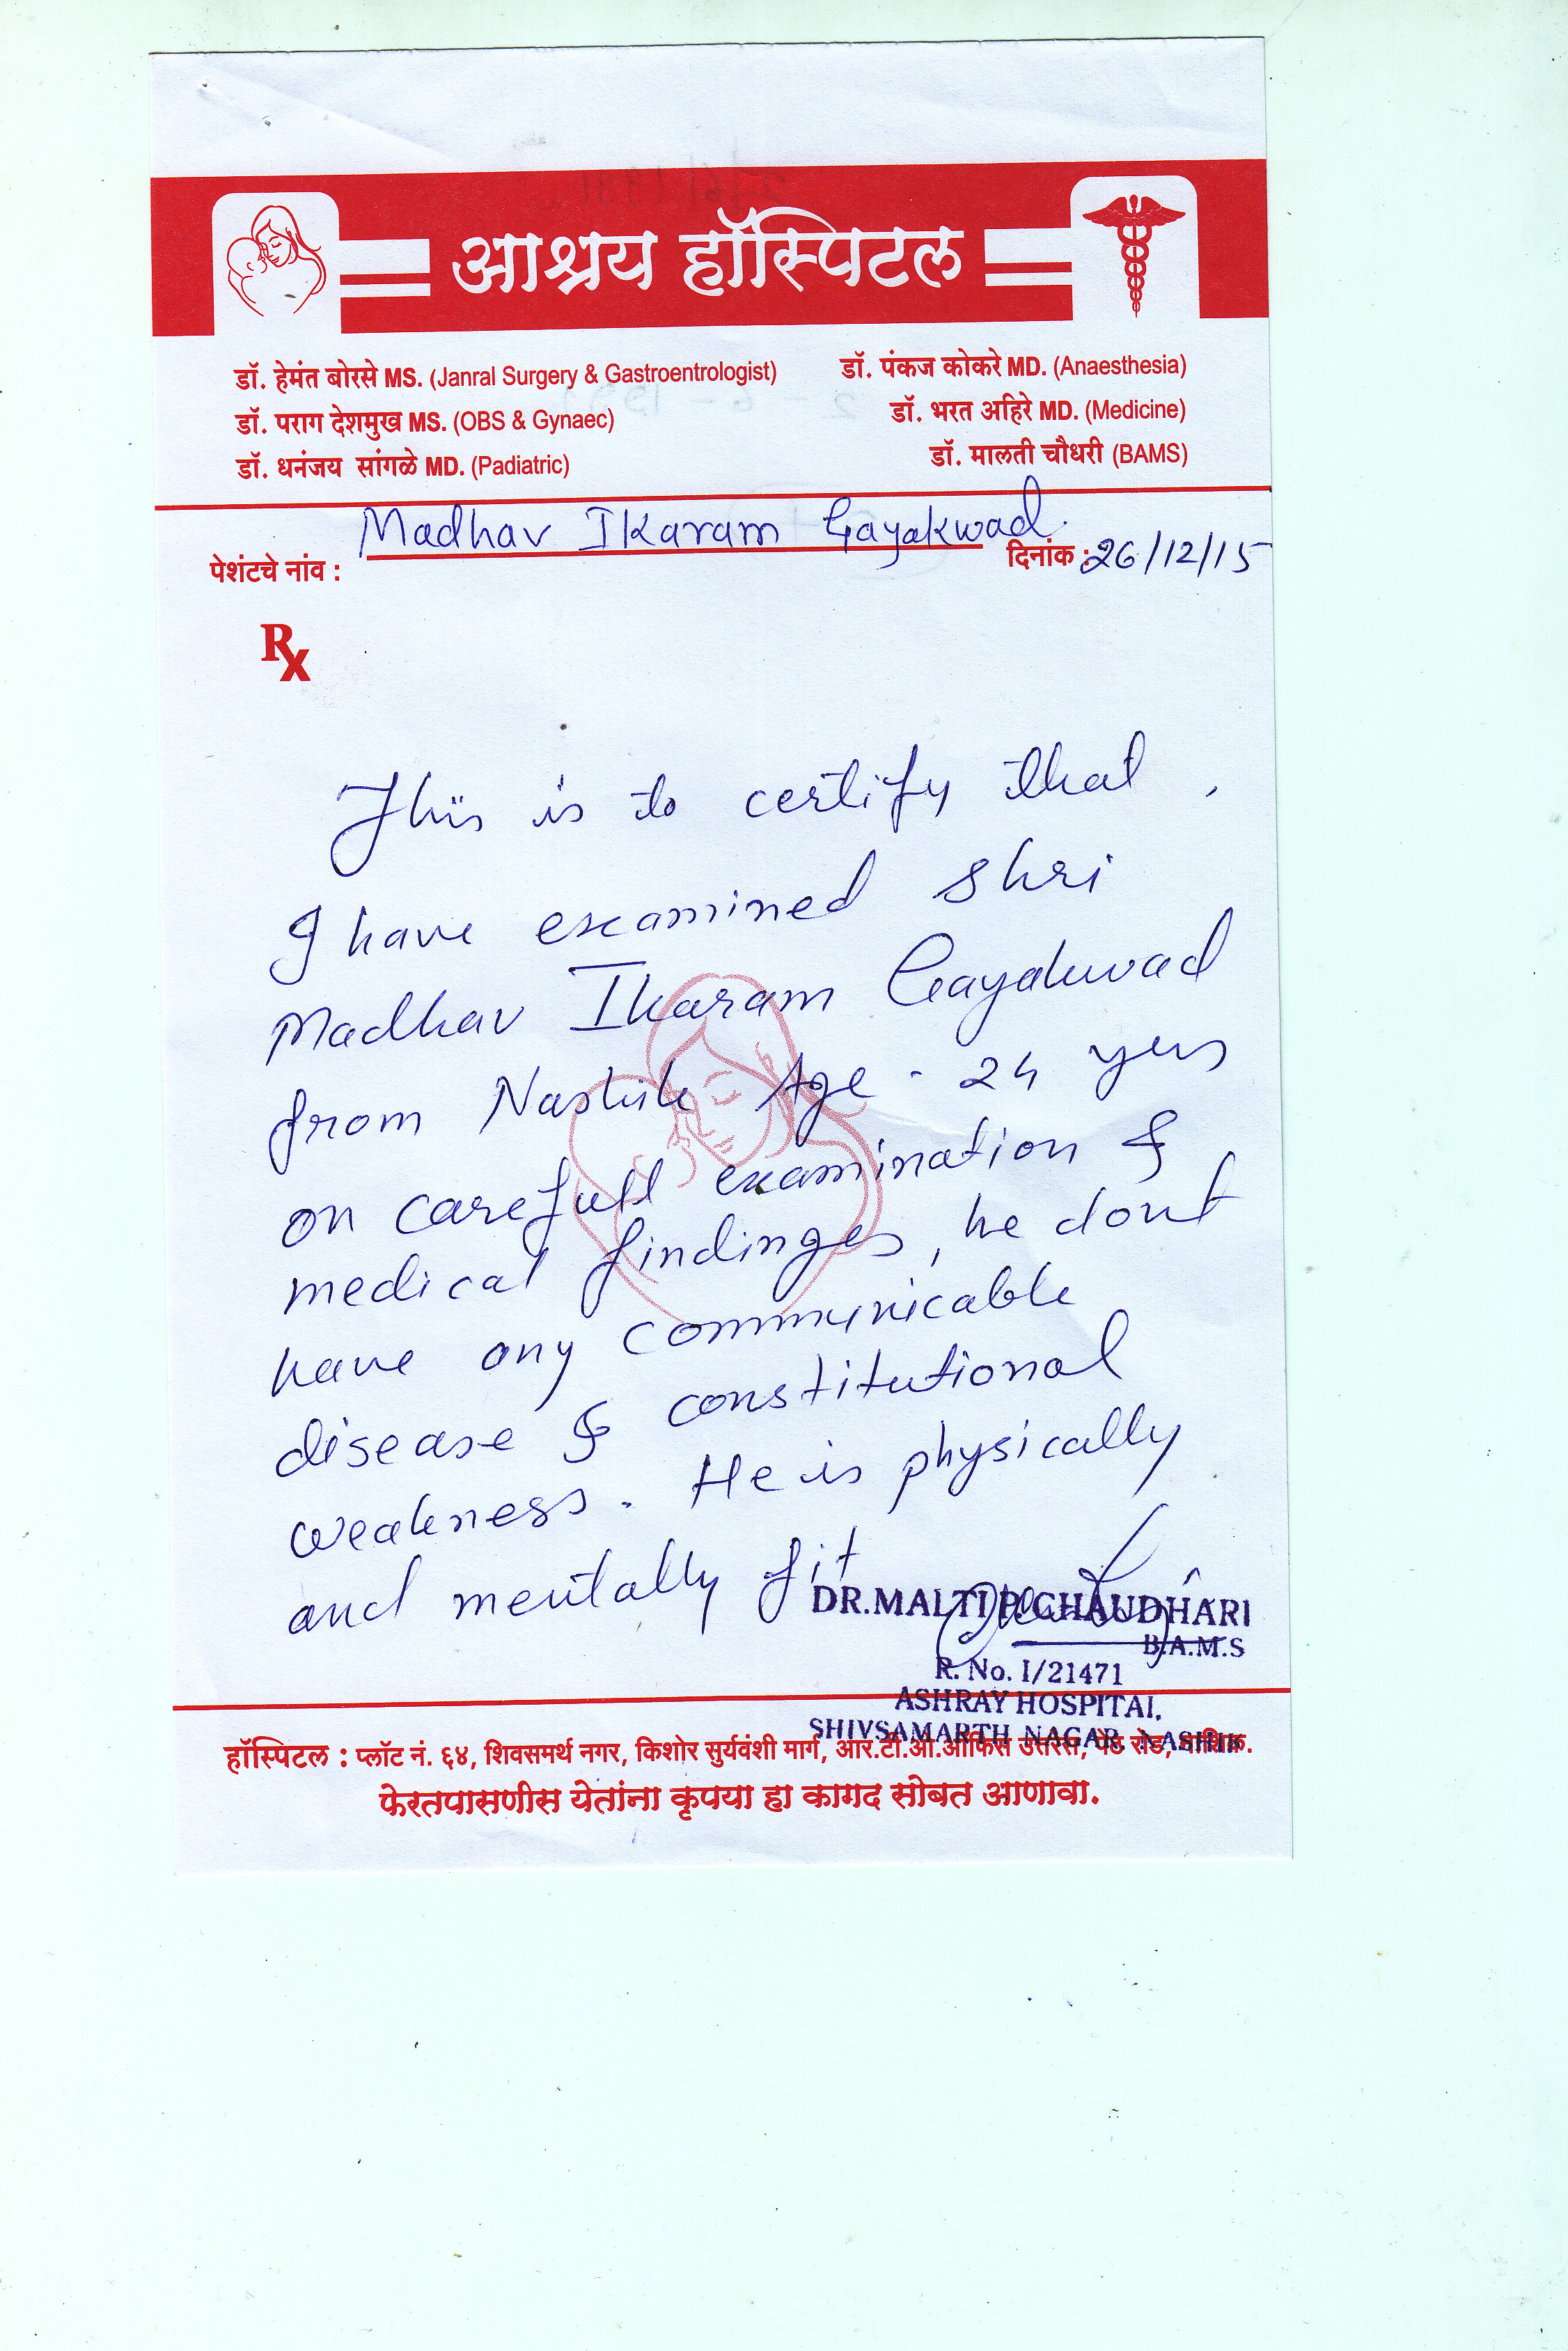 आश्रय हॉस्पिटल
डॉ. हेमंत बोरसे MS. (Janral Surgery & Gastroentrologist) डॉ. पंकज कोकरे MD. (Anaesthesia)
डॉ. पराग देशमुख MS. (OBS & Gynaec) डॉ. भरत अहिरे MD. (Medicine)
डॉ. धनंजय सांगळे MD. (Padiatric) डॉ. मालती चौधरी (BAMS)
पेशंटचे नांव : Madhav Ikaram Gayakwad. दिनांक : 26/12/15
Rx
This is to certify that,
I have examined shri
Madhav Ikaram Gayakwad
from Nashik Age - 24 yers
on carefull examination &
medical findinges, he dont
have any communicable
disease & constitutional
weakness. He is physically
and mentally fit
DR.MALTI P. CHAUDHARI
B.A.M.S
R. No. I/21471
ASHRAY HOSPITAL,
SHIVSAMARTH NAGAR, NASHIK
हॉस्पिटल : प्लॉट नं. ६४, शिवसमर्थ नगर, किशोर सुर्यवंशी मार्ग, आर.टी.ओ.ऑफिस उत्तरेस, पेठ रोड, नाशिक.
फेरतपासणीस येतांना कृपया हा कागद सोबत आणावा.